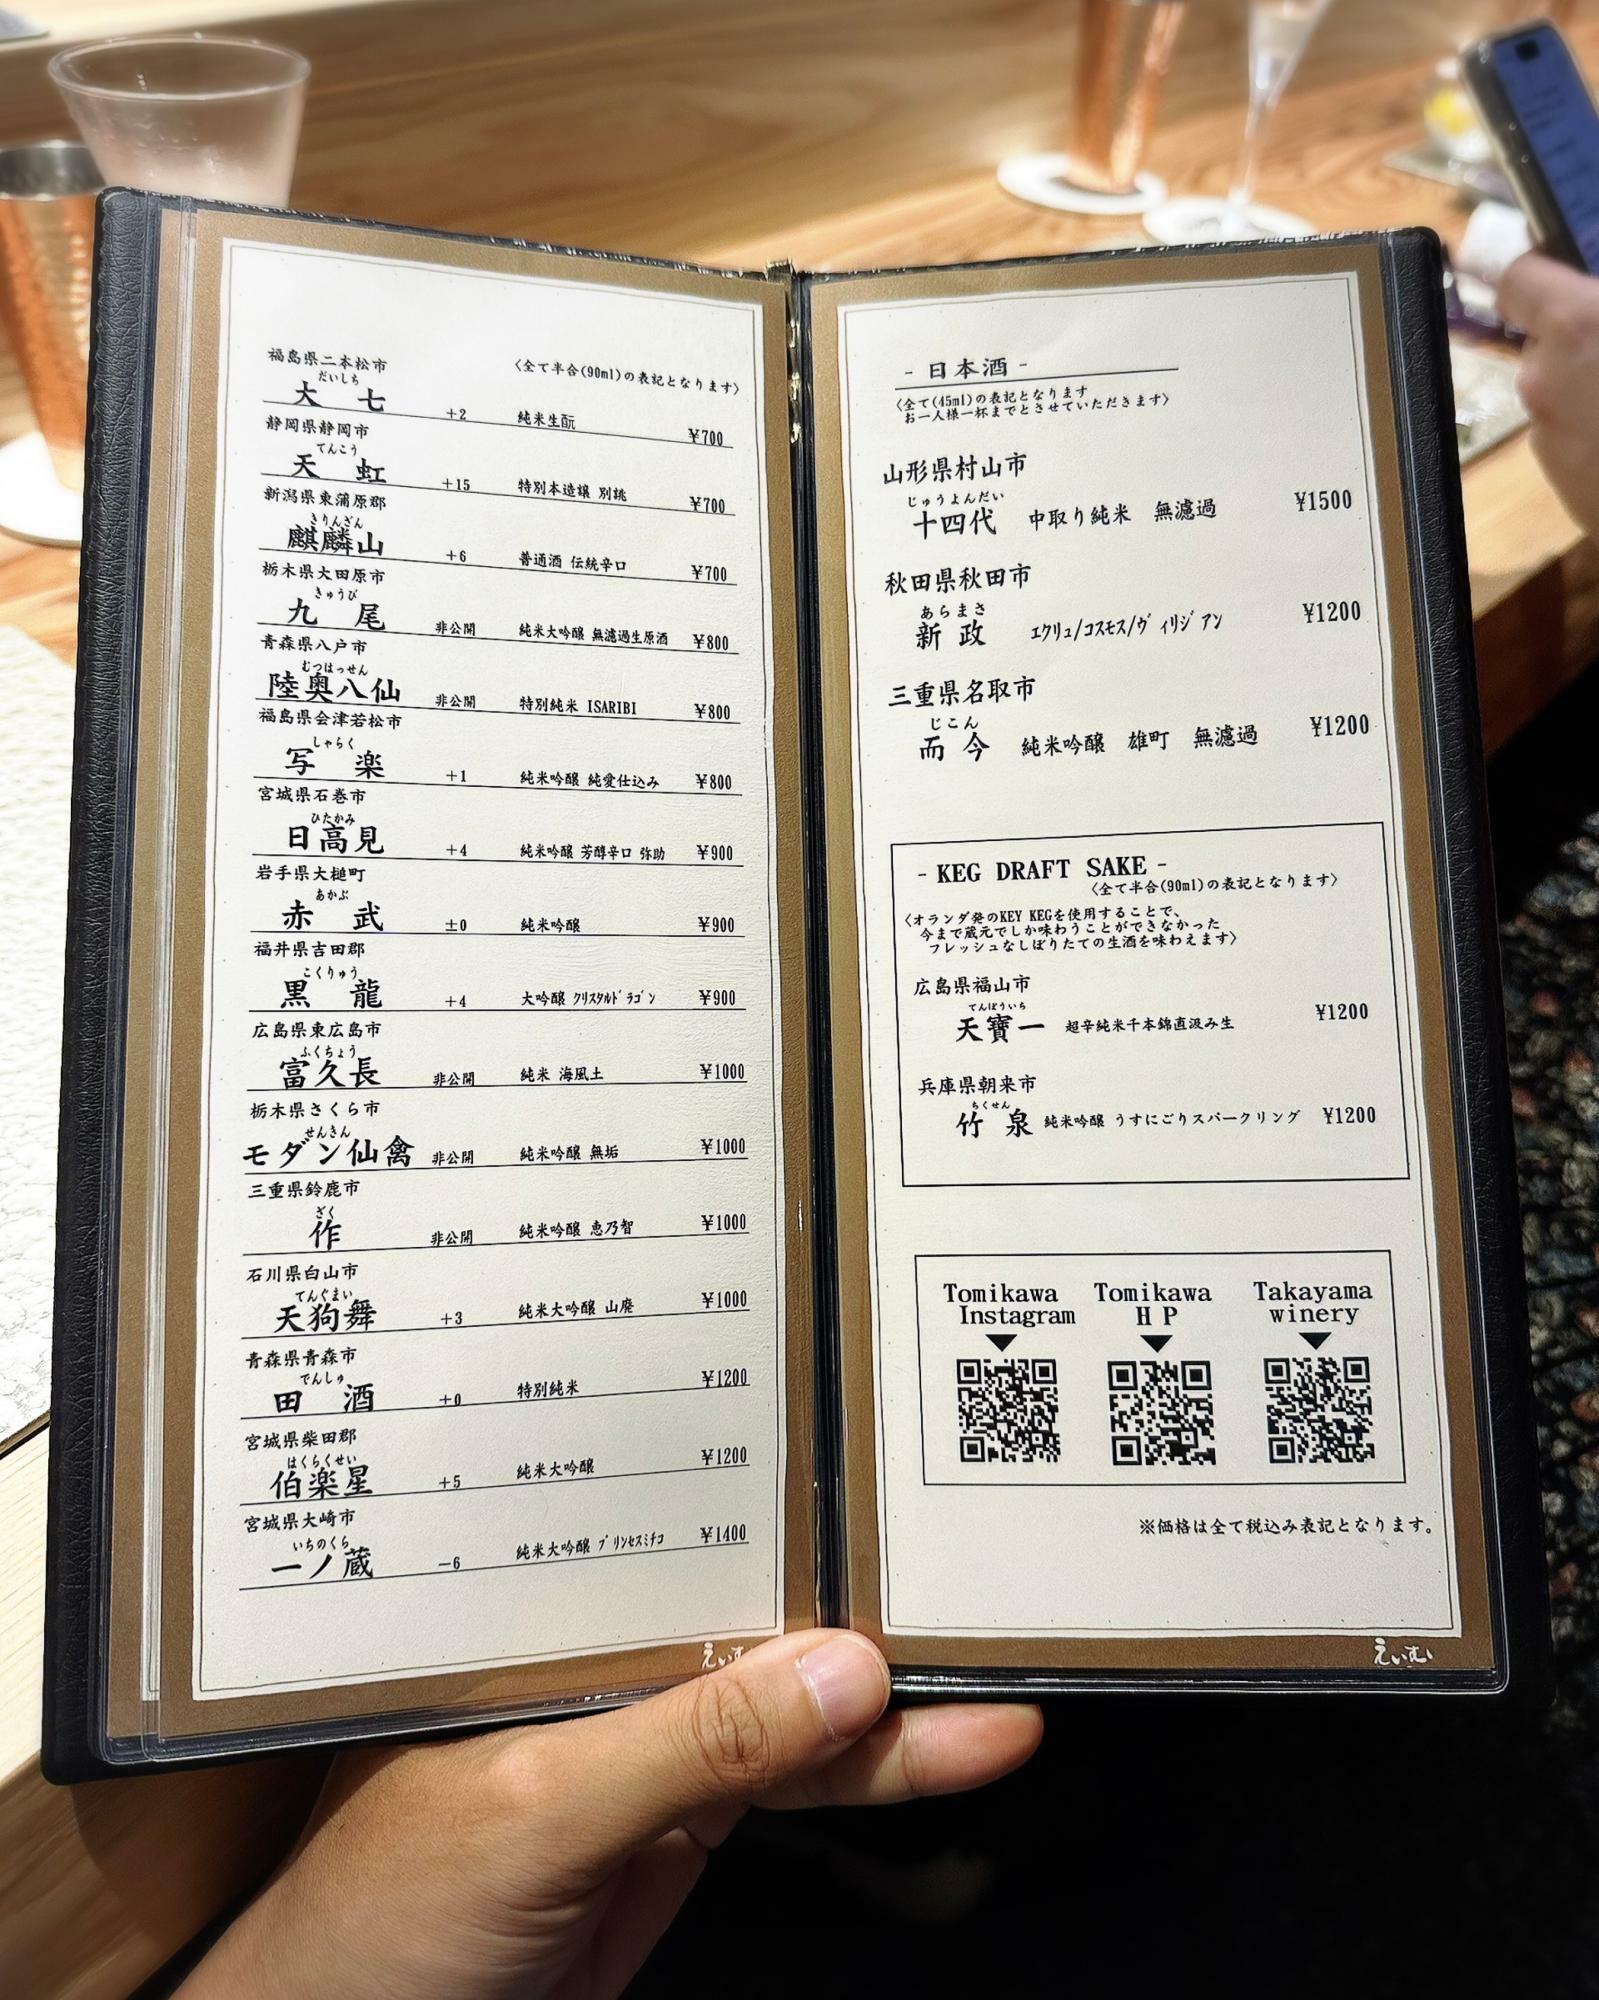 〈全て半合(90ml)の表記となります〉
福島県二本松市
だいしち
大 七 +2 純米生酛 ¥700
静岡県静岡市
てんこう
天 虹 +15 特別本造譲 別誂 ¥700
新潟県東蒲原郡
きりんざん
麒麟山 +6 普通酒 伝統辛口 ¥700
栃木県大田原市
きゅうび
九 尾 非公開 純米大吟醸 無濾過生原酒 ¥800
青森県八戸市
むつはっせん
陸奥八仙 非公開 特別純米 ISARIBI ¥800
福島県会津若松市
しゃらく
写 楽 +1 純米吟醸 純愛仕込み ¥800
宮城県石巻市
ひたかみ
日高見 +4 純米吟醸 芳醇辛口 弥助 ¥900
岩手県大槌町
あかぶ
赤 武 ±0 純米吟醸 ¥900
福井県吉田郡
こくりゅう
黒 龍 +4 大吟醸 クリスタルドラゴン ¥900
広島県東広島市
ふくちょう
富久長 非公開 純米 海風土 ¥1000
栃木県さくら市
せんきん
モダン仙禽 非公開 純米吟醸 無垢 ¥1000
三重県鈴鹿市
ざく
作 非公開 純米吟醸 恵乃智 ¥1000
石川県白山市
てんぐまい
天狗舞 +3 純米大吟醸 山廃 ¥1000
青森県青森市
でんしゅ
田 酒 +0 特別純米 ¥1200
宮城県柴田郡
はくらくせい
伯楽星 +5 純米大吟醸 ¥1200
宮城県大崎市
いちのくら
一ノ蔵 −6 純米大吟醸 プリンセスミチコ ¥1400
えいむ
- 日本酒 -
〈全て(45ml)の表記となります
お一人様一杯までとさせていただきます〉
山形県村山市
じゅうよんだい
十四代 中取り純米 無濾過 ¥1500
秋田県秋田市
あらまさ
新 政 エクリュ/コスモス/ヴィリジアン ¥1200
三重県名取市
じこん
而 今 純米吟醸 雄町 無濾過 ¥1200
- KEG DRAFT SAKE -
〈全て半合(90ml)の表記となります〉
〈オランダ発のKEY KEGを使用することで、
今まで蔵元でしか味わうことができなかった
フレッシュなしぼりたての生酒を味わえます〉
広島県福山市
てんぽういち
天寶一 超辛純米千本錦直汲み生 ¥1200
兵庫県朝来市
ちくせん
竹 泉 純米吟醸 うすにごりスパークリング ¥1200
Tomikawa Instagram
Tomikawa HP
Takayama winery
※価格は全て税込み表記となります。
えいむ